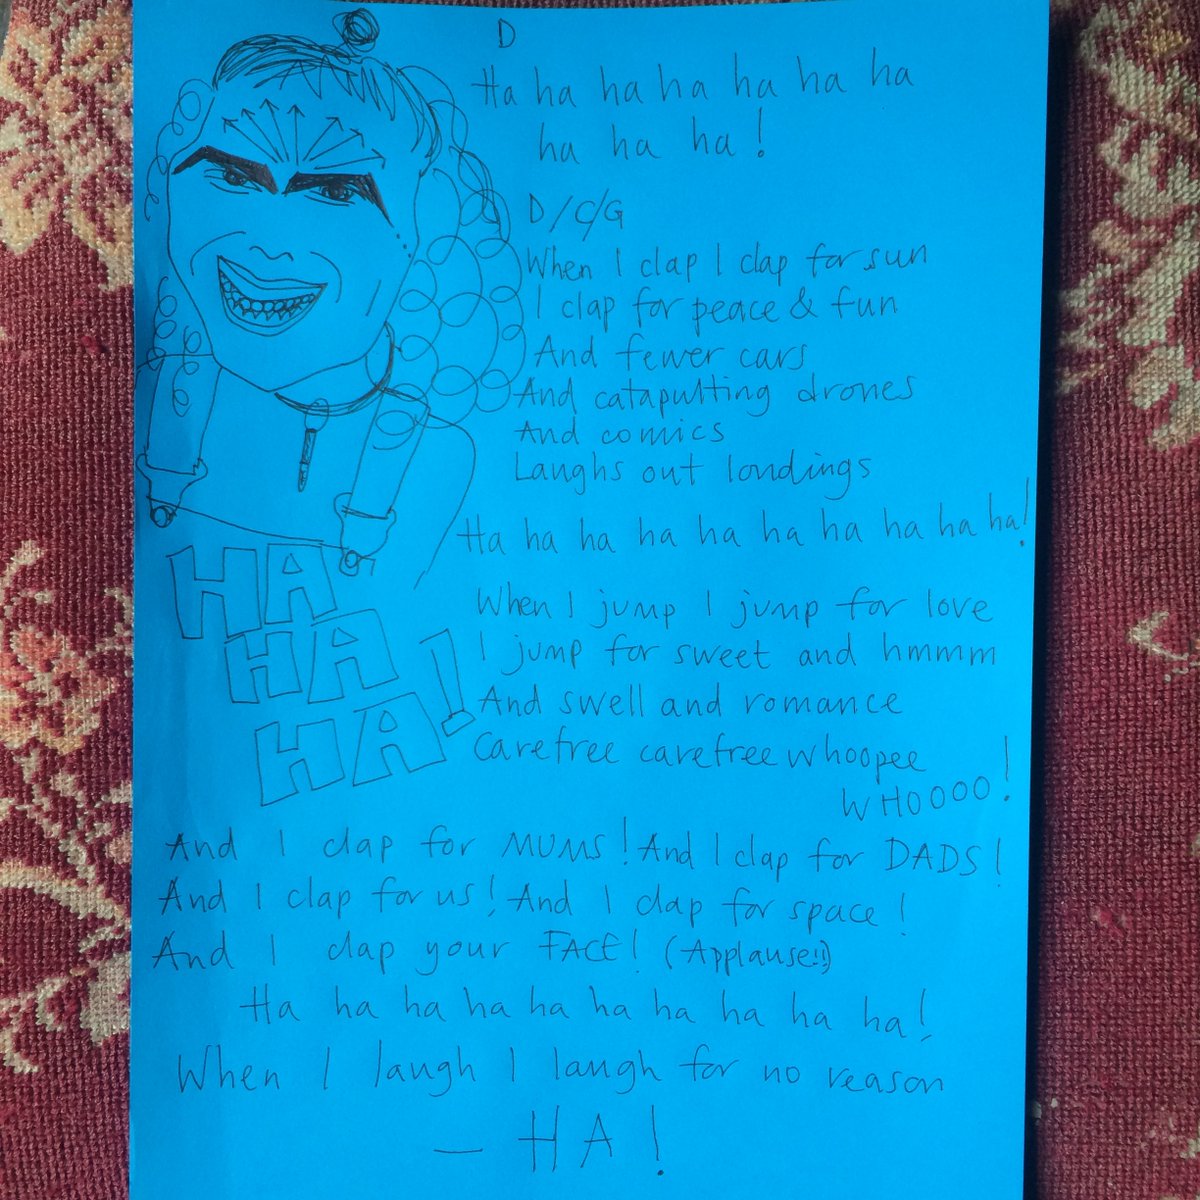 D
Ha ha ha ha ha ha ha
ha ha ha!
D/C/G
When I clap I clap for sun
I clap for peace & fun
And fewer cars
And catapulting drones
And comics
Laughs out loudings
Ha ha ha ha ha ha ha ha ha ha!
HA
HA
HA!
When I jump I jump for love
I jump for sweet and hmmm
And swell and romance
Carefree carefree whoopee
WHOOOO!
And I clap for MUMS! And I clap for DADS!
And I clap for us! And I clap for space!
And I clap your FACE! (Applause!!)
Ha ha ha ha ha ha ha ha ha ha!
When I laugh I laugh for no reason
– HA!